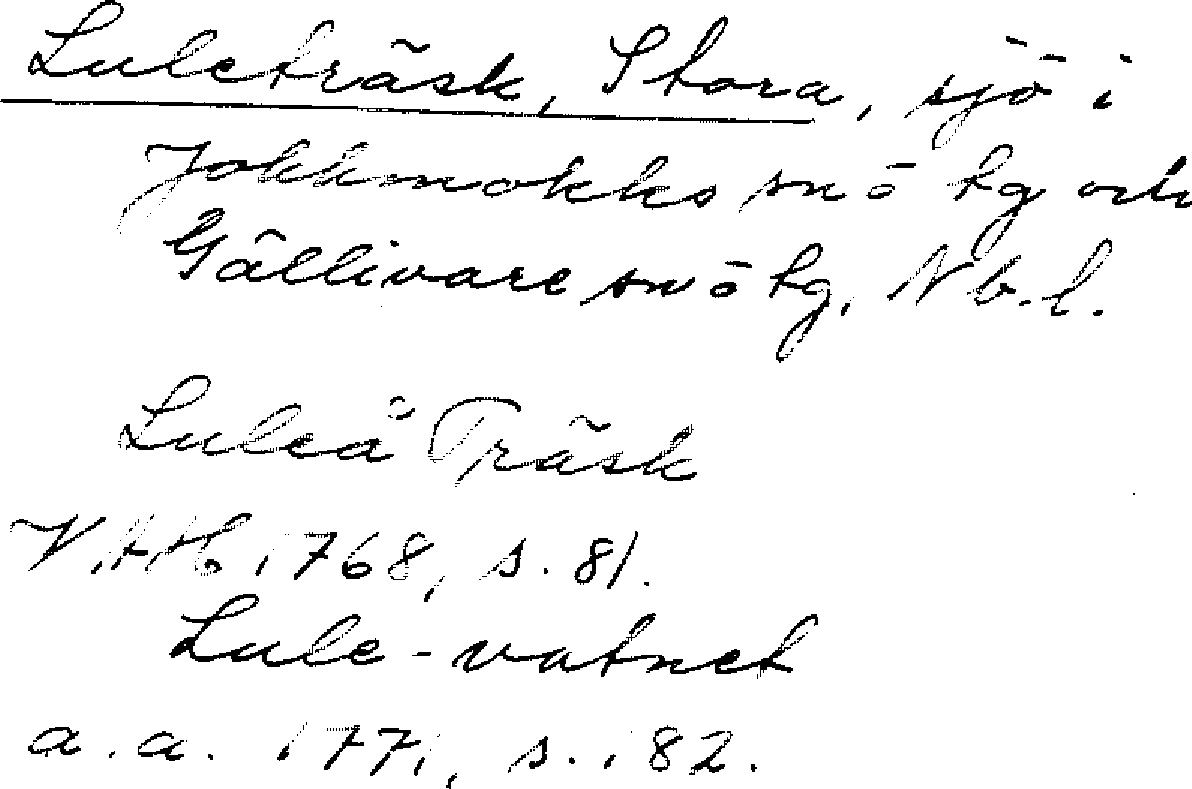 Luleträsk, Stora, sjö i
Jokkmokks sn ö tg och
Gällivare sn ö tg, Nb.l.
Luleå Träsk
VAH 1768, s. 81.
Lule-vatnet
a.a. 1771, s. 182.